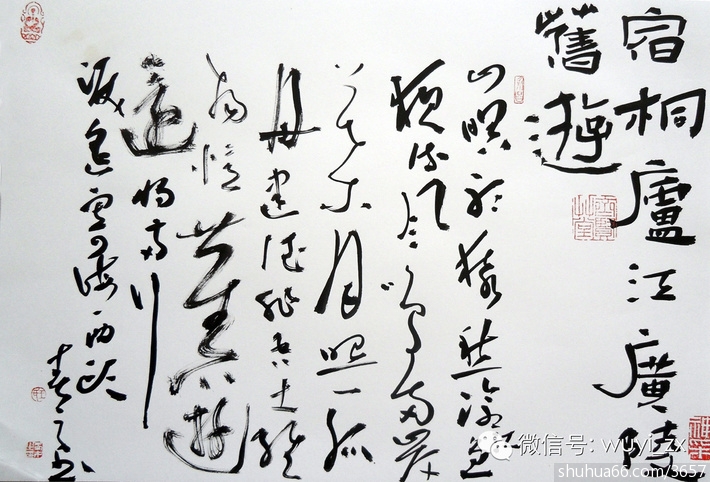 宿桐廬江廣陵
舊遊
山暝聽猿愁滄
流風鳴兩岸
葉月照一孤
舟建德非吾土維
揚憶舊遊
還將兩行
淚遙寄海西頭
微信号: wuyi_zx
shuhua66.com/3657